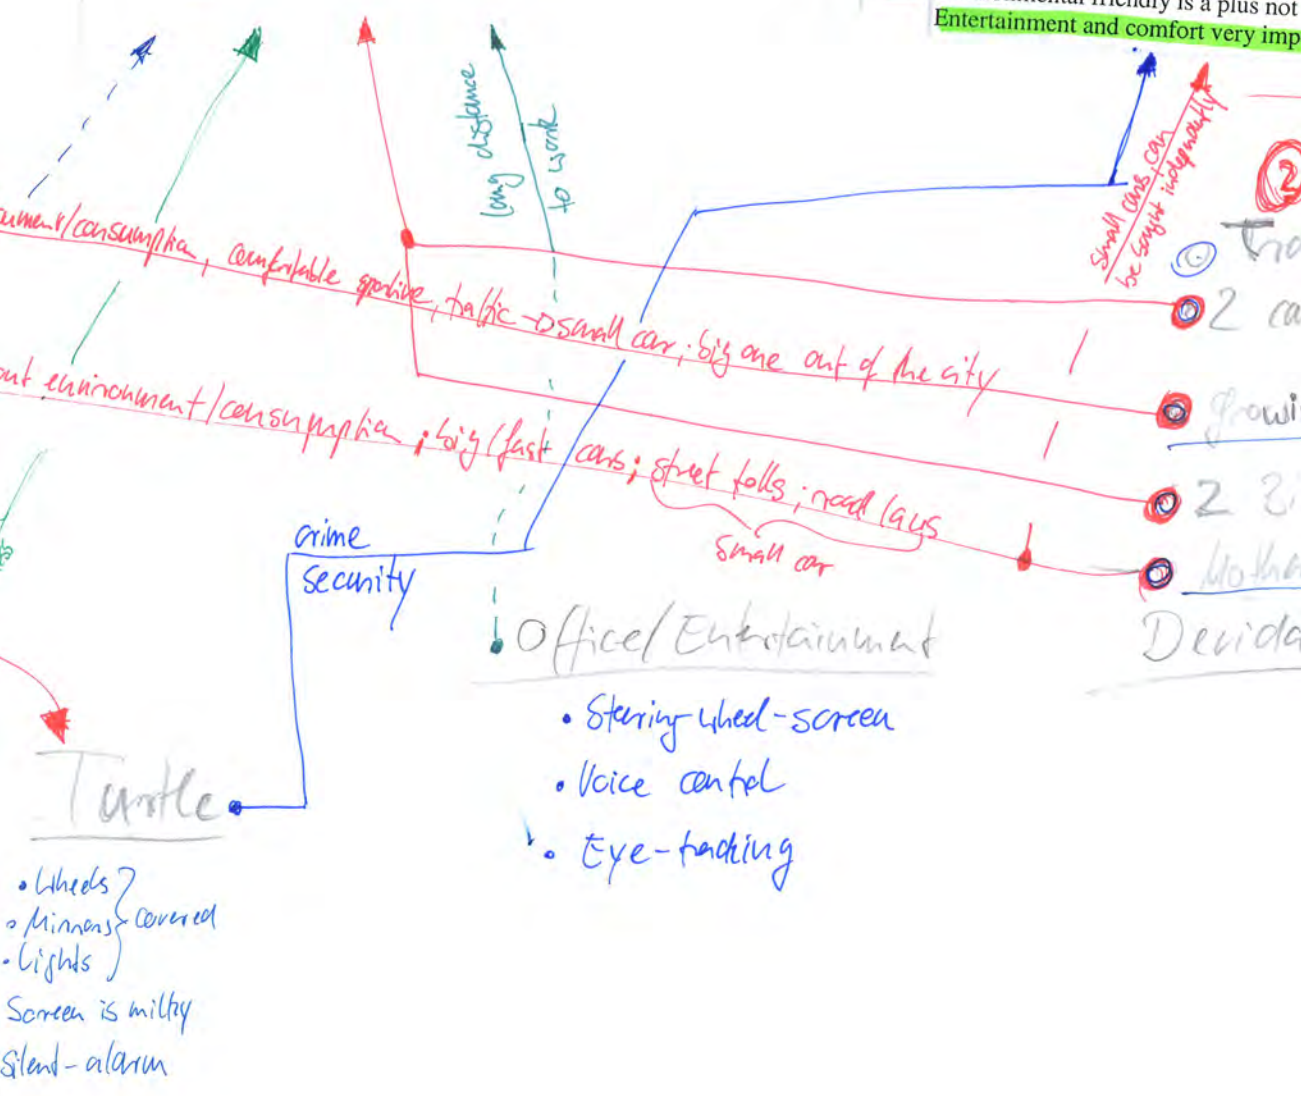 friendly is a plus not
Entertainment and comfort very imp
long distance
to work
Small cars, can
be bought independently
2
/consumption, comfortable sportive, traffic → small car; big one out of the city
2 ca
growi
out environment/consumption; big/fast cars; street tolls; road laws
small car
2
crime
security
Office/Entertainment
• Steering-wheel-screen
• Voice control
• Eye-tracking
Turtle
• Wheels
• Mirrors
covered
• Lights
Screen is milky
Silent-alarm